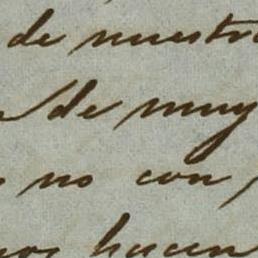 de nuestro
de muy
no con
hacen